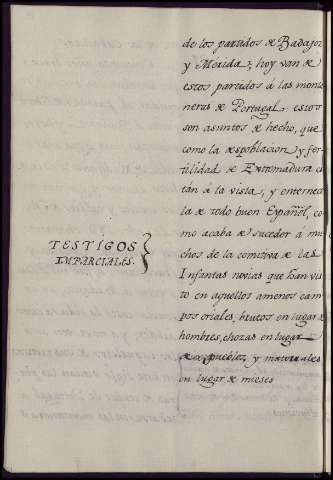 de los partidos de Badajoz
y Merida; hoy van de
estos partidos á las monte
neras de Portugal: estos
son asuntos de hecho, que
como la despoblacion y fer-
tilidad de Extremadura es
tán á la vista, y enternece
la de todo buen Español, co-
mo acaba de suceder á mu
chos de la comitiva de las
Infantas novias que han vis
to en aquellos amenos cam
pos eriales, brutos en lugar de
hombres, chozas en lugar
de pueblos, y matorrales
en lugar de mieses
TESTIGOS
IMPARCIALES.